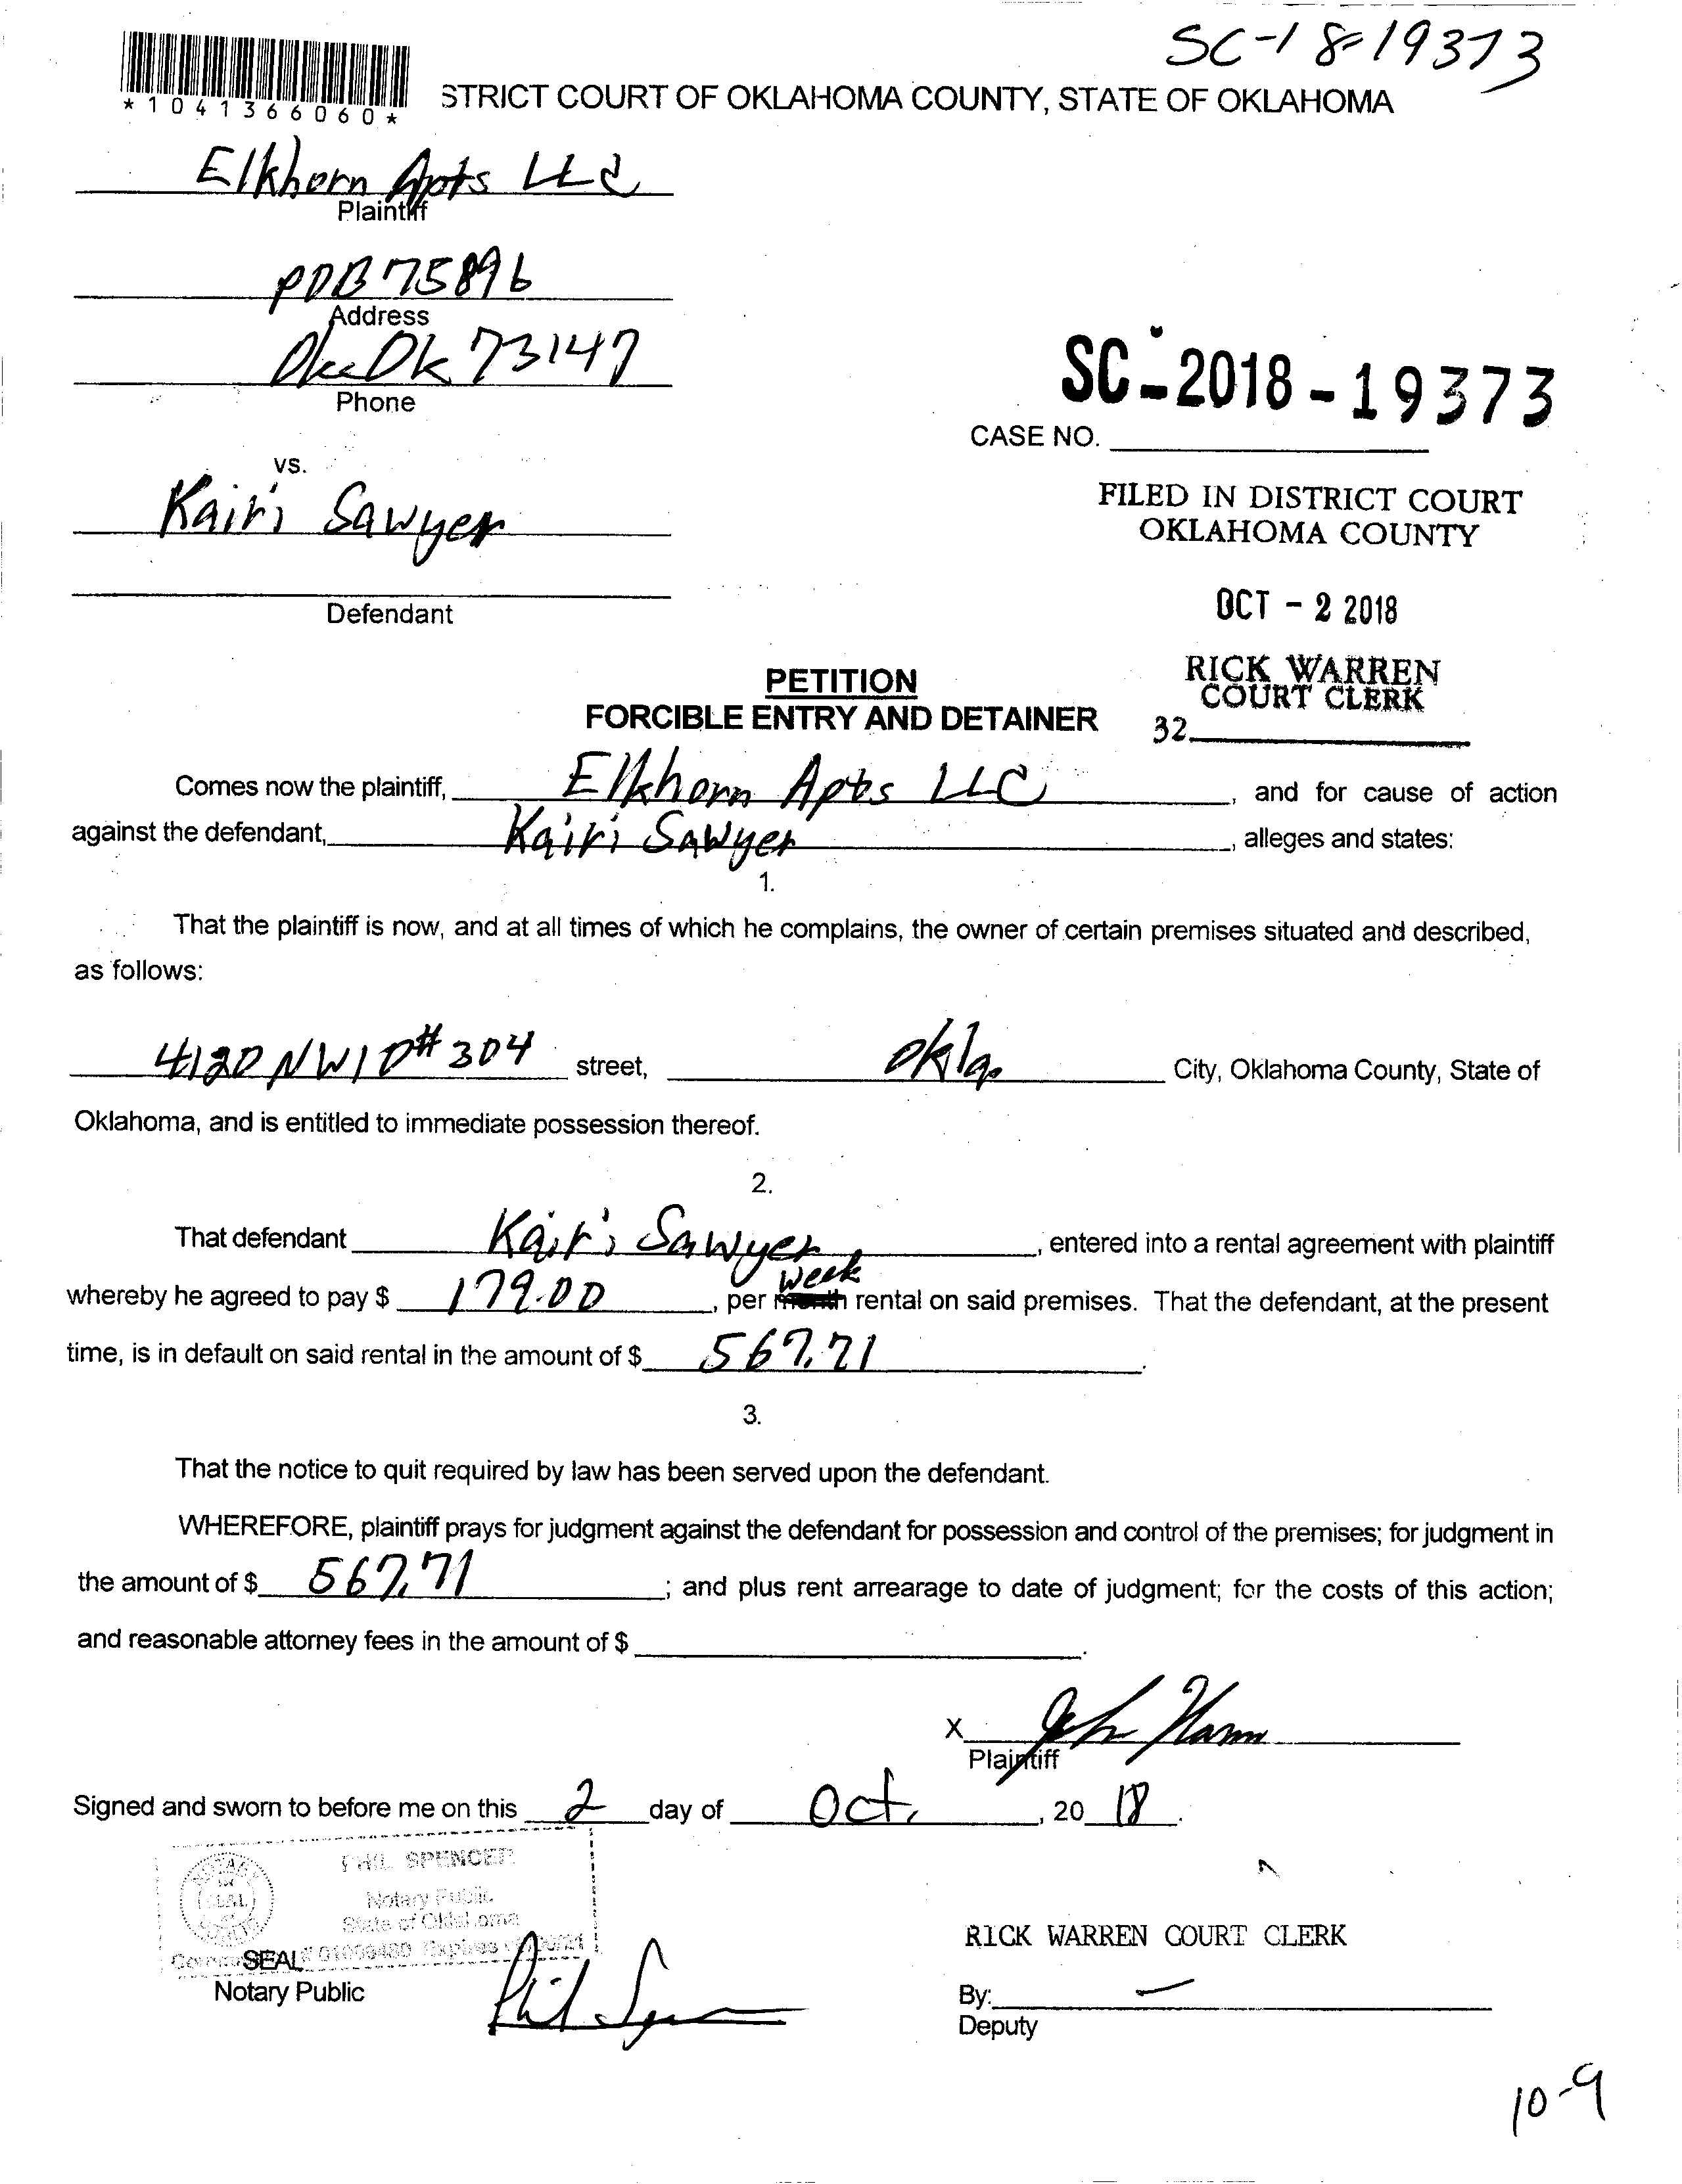 SC-18-19373
*1041366060*
STRICT COURT OF OKLAHOMA COUNTY, STATE OF OKLAHOMA
Elkhorn Apts LLC
Plaintiff
POB 75896
Address
Okc Ok 73147
Phone
SC-2018-19373
CASE NO.
vs.
Kairi Sawyer
FILED IN DISTRICT COURT
OKLAHOMA COUNTY
Defendant
OCT - 2 2018
RICK WARREN
COURT CLERK
32
PETITION
FORCIBLE ENTRY AND DETAINER
Comes now the plaintiff, Elkhorn Apts LLC, and for cause of action
against the defendant, Kairi Sawyer, alleges and states:
1.
That the plaintiff is now, and at all times of which he complains, the owner of certain premises situated and described,
as follows:
4120 NW10 #304 street, Okla. City, Oklahoma County, State of
Oklahoma, and is entitled to immediate possession thereof.
2.
That defendant Kairi Sawyer, entered into a rental agreement with plaintiff
week
whereby he agreed to pay $ 179.00, per month rental on said premises. That the defendant, at the present
time, is in default on said rental in the amount of $ 567.71.
3.
That the notice to quit required by law has been served upon the defendant.
WHEREFORE, plaintiff prays for judgment against the defendant for possession and control of the premises; for judgment in
the amount of $ 567.71; and plus rent arrearage to date of judgment; for the costs of this action;
and reasonable attorney fees in the amount of $
X John
Plaintiff
Signed and sworn to before me on this 2 day of Oct., 20 18.
PHIL SPENCER
Notary Public
State of Oklahoma
SEAL
Notary Public
Phil Spencer
RICK WARREN COURT CLERK
By:
Deputy
10-9